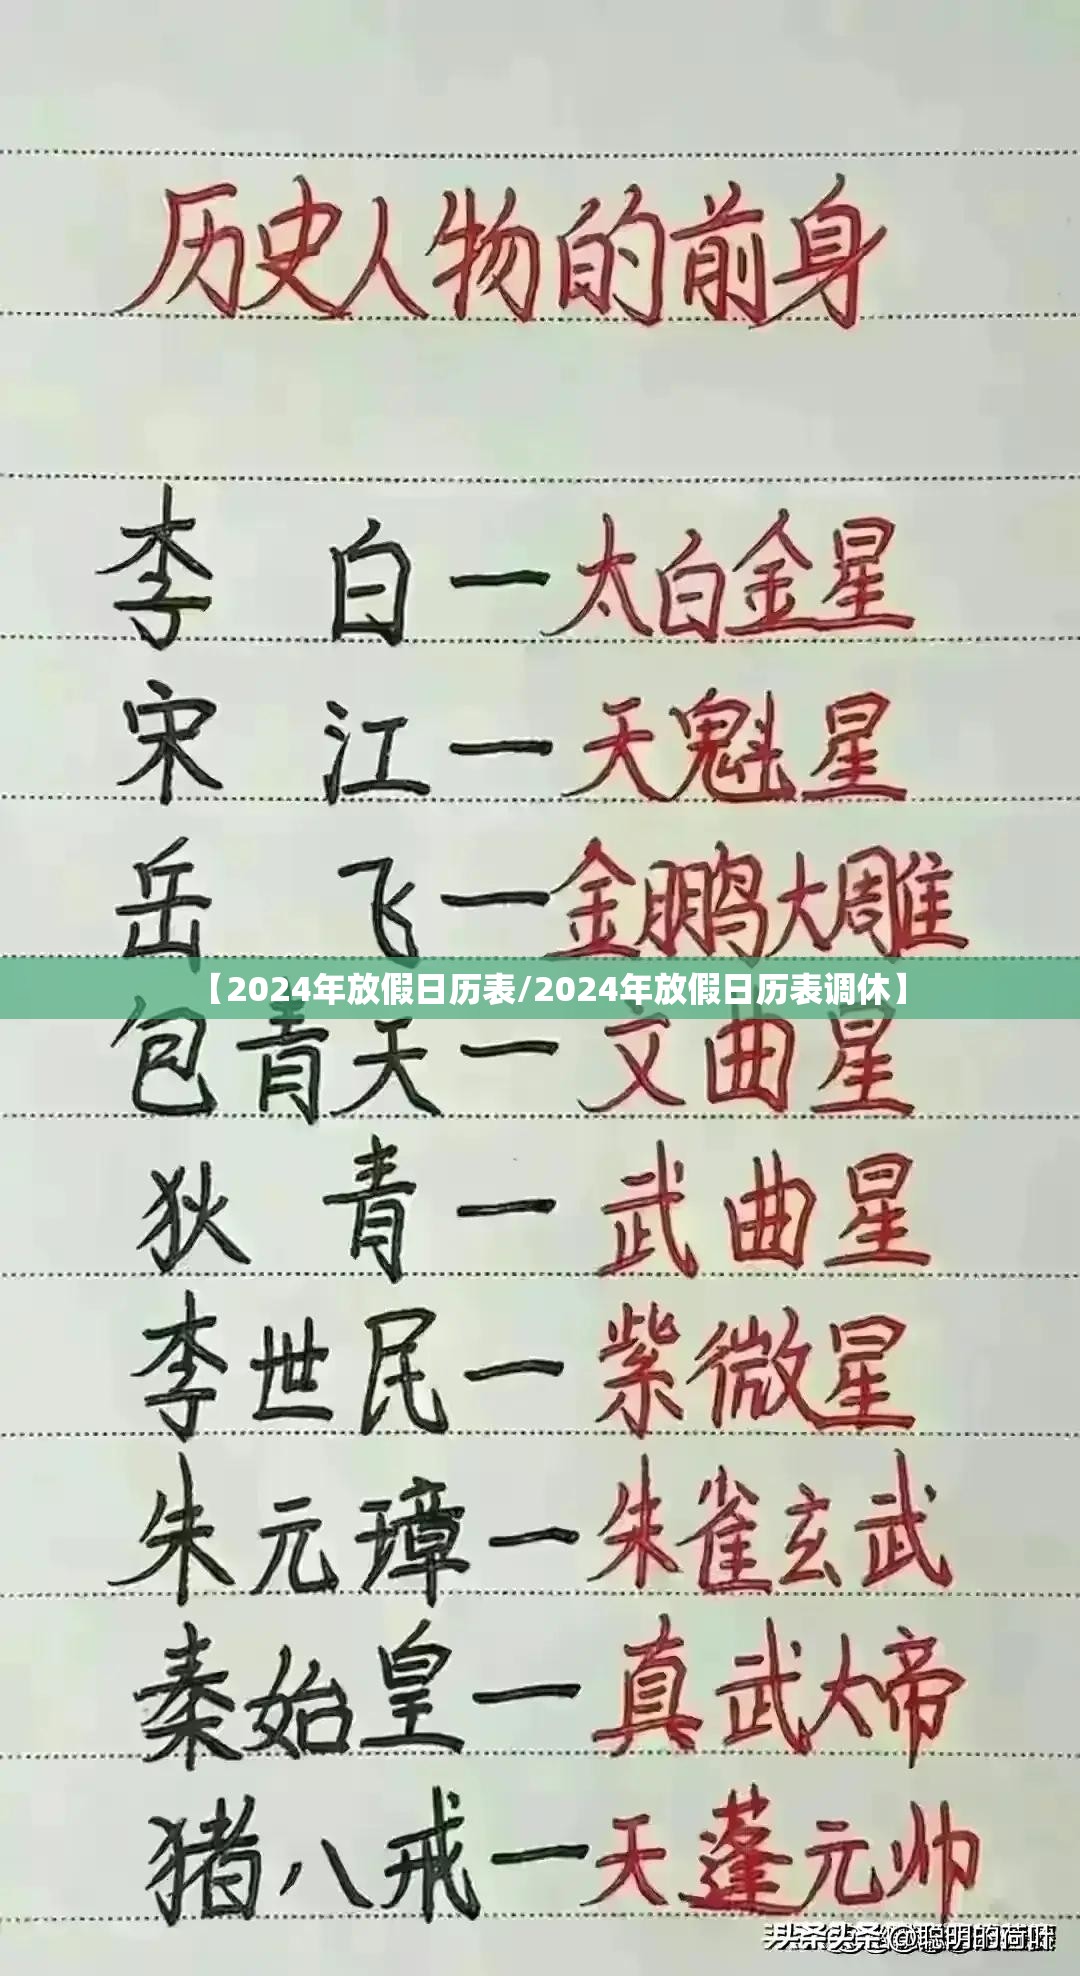 历史人物的前身
李白一太白金星
宋江一天魁星
岳飞一金鹏大雕
【2024年放假日历表/2024年放假日历表调休】
包青天一文曲星
狄青一武曲星
李世民一紫微星
朱元璋一朱雀玄武
秦始皇一真武大帝
猪八戒一天蓬元帅
头条 @聪明的荷叶